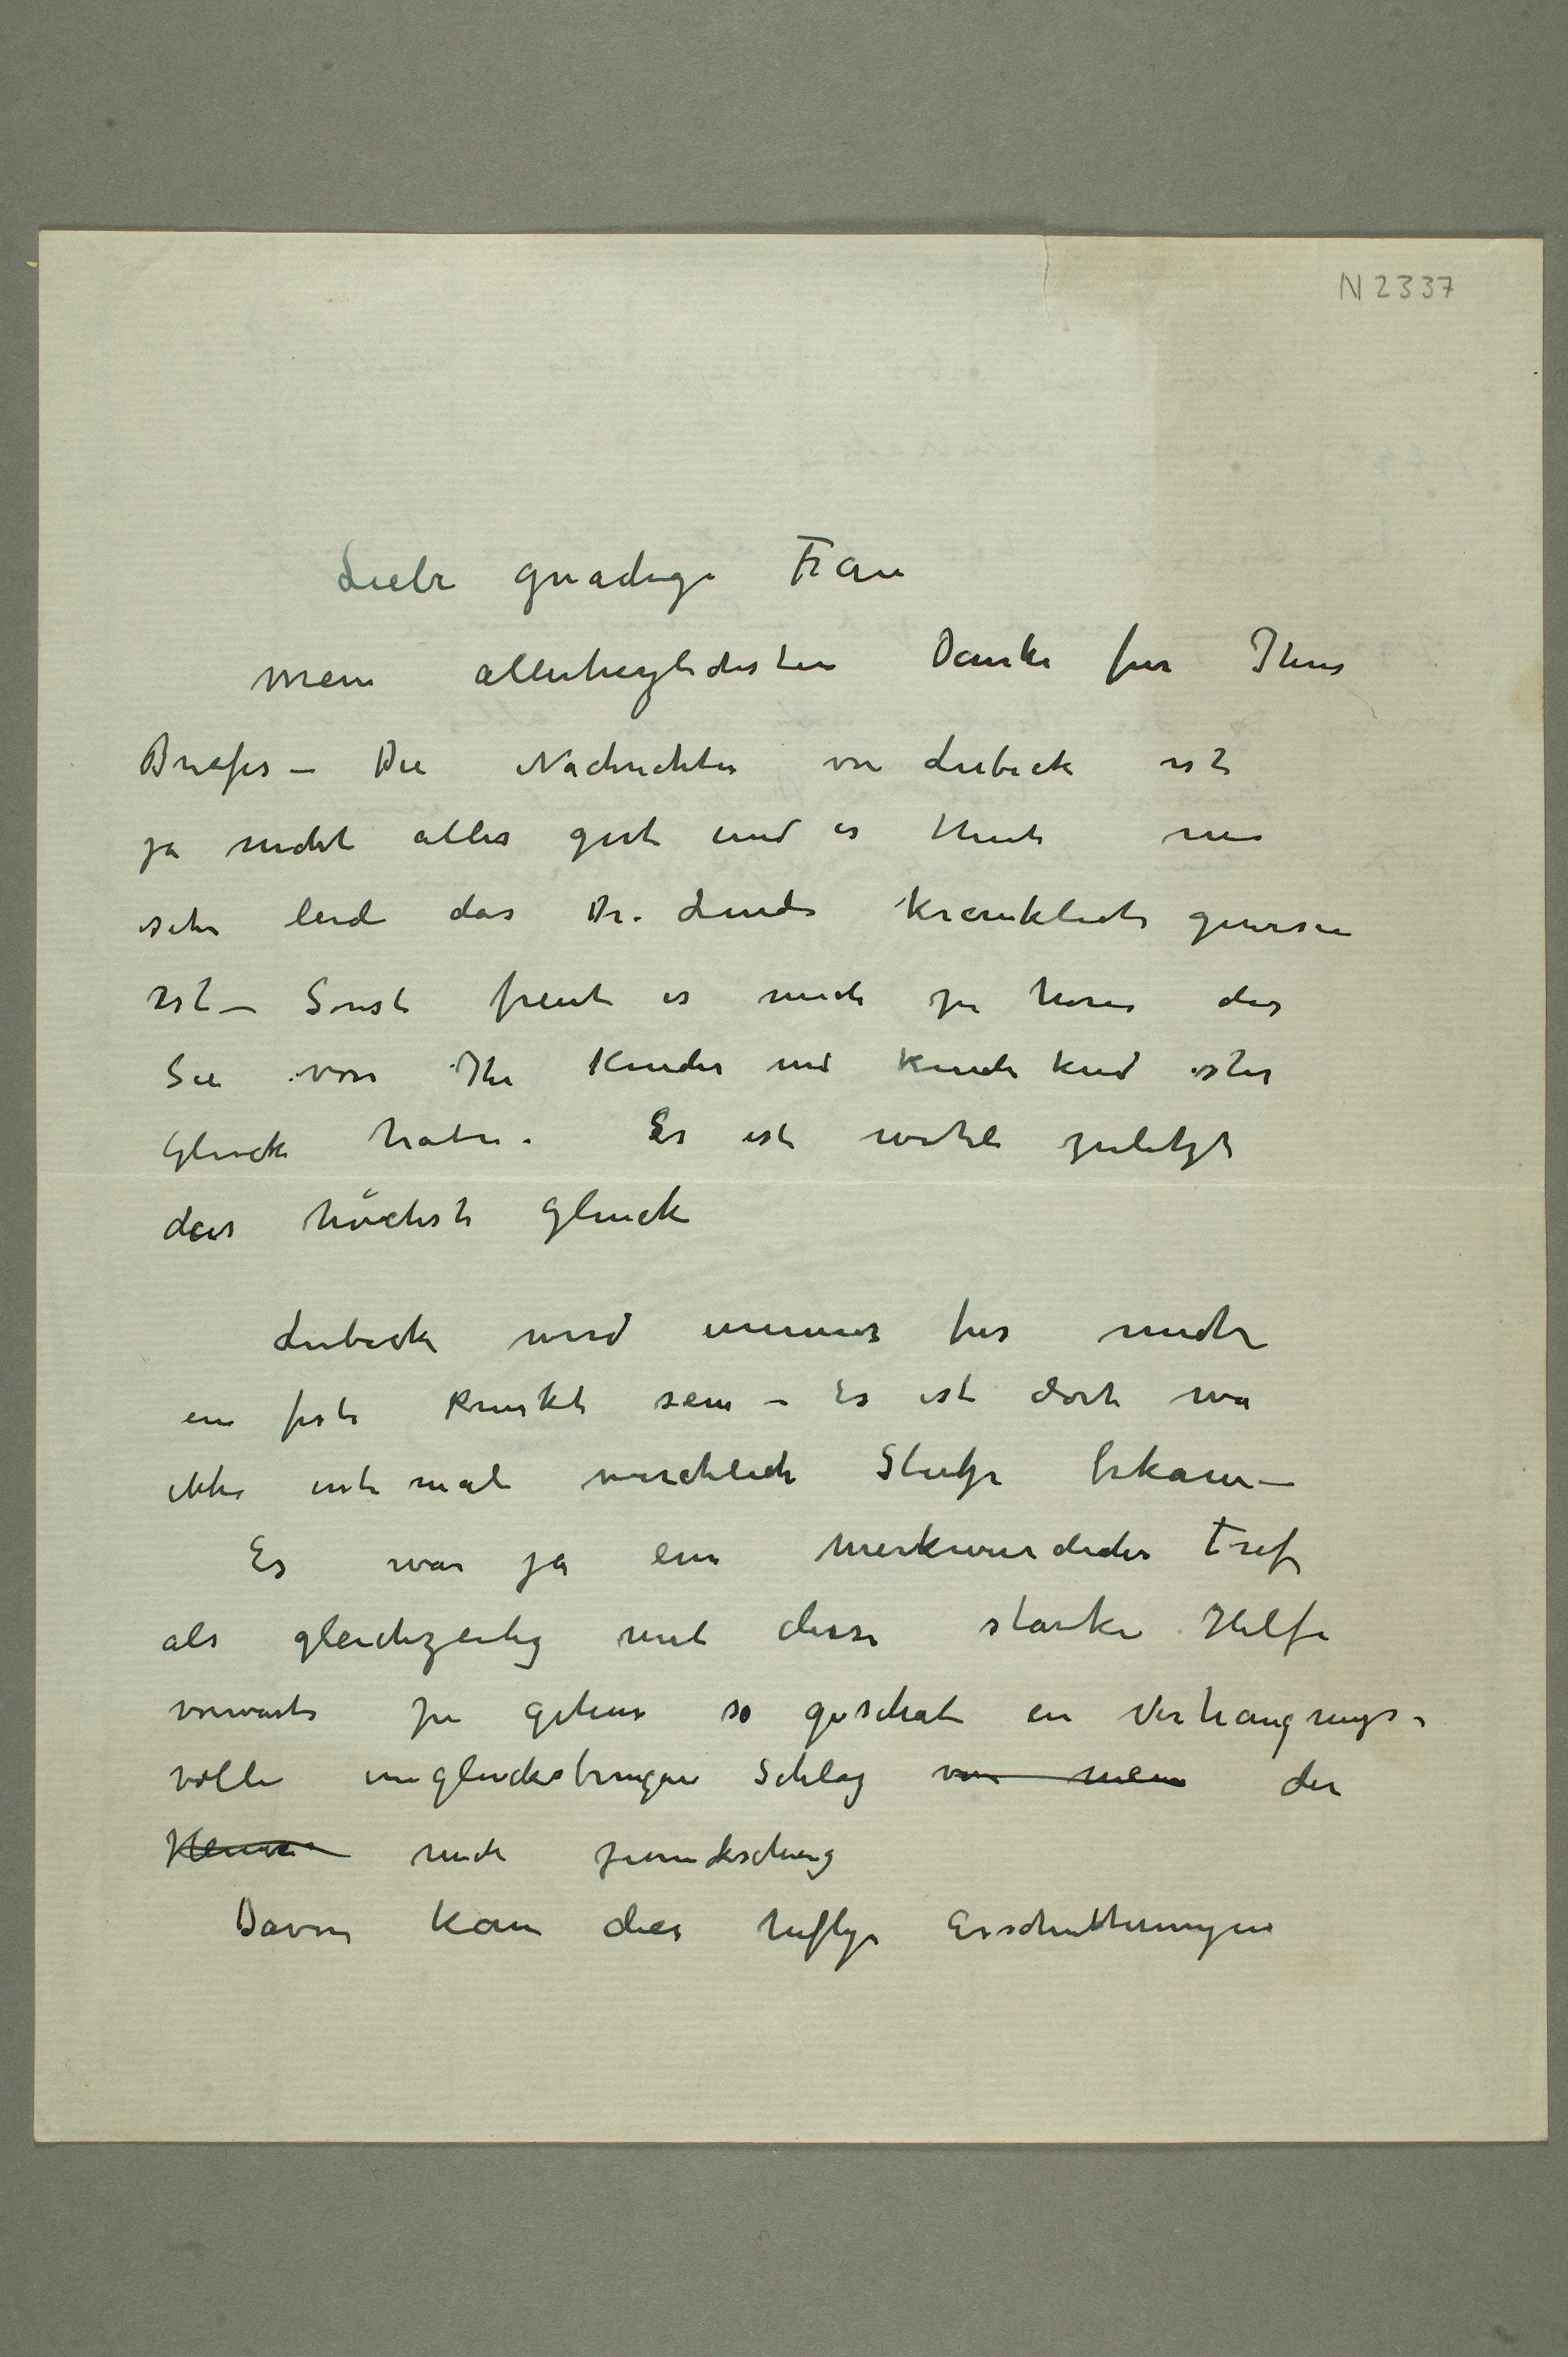 N 2337
Liebe gnädige Frau
Mein allerherzlichsten Danke für Ihres
Briefes – Die Nachrichten von Lübeck ist
ja nicht alles gut und es thut mir
sehr leid das Dr. Linde kranklich gewesen
ist – Sonst freut es mich zu horen das
Sie von Ihr Kinder und Kindekind
Gluck haben. Es ist wohl zuletzt
das höchste Gluck
Lübeck wird immer fur mich
ein feste Punkt sein – Es ist dort wo
mal wirchlich Stutze bekam –
Es war ja ein merkwurdiches Tref
als gleichzeitig mit diese starke Hilfe
vorwarts zu gehen so geschah ein Verhängnys-
volle unglucksbringen Schlag von mein der
mich zuruckschlug
Davon kam die heftige Erschutterungen